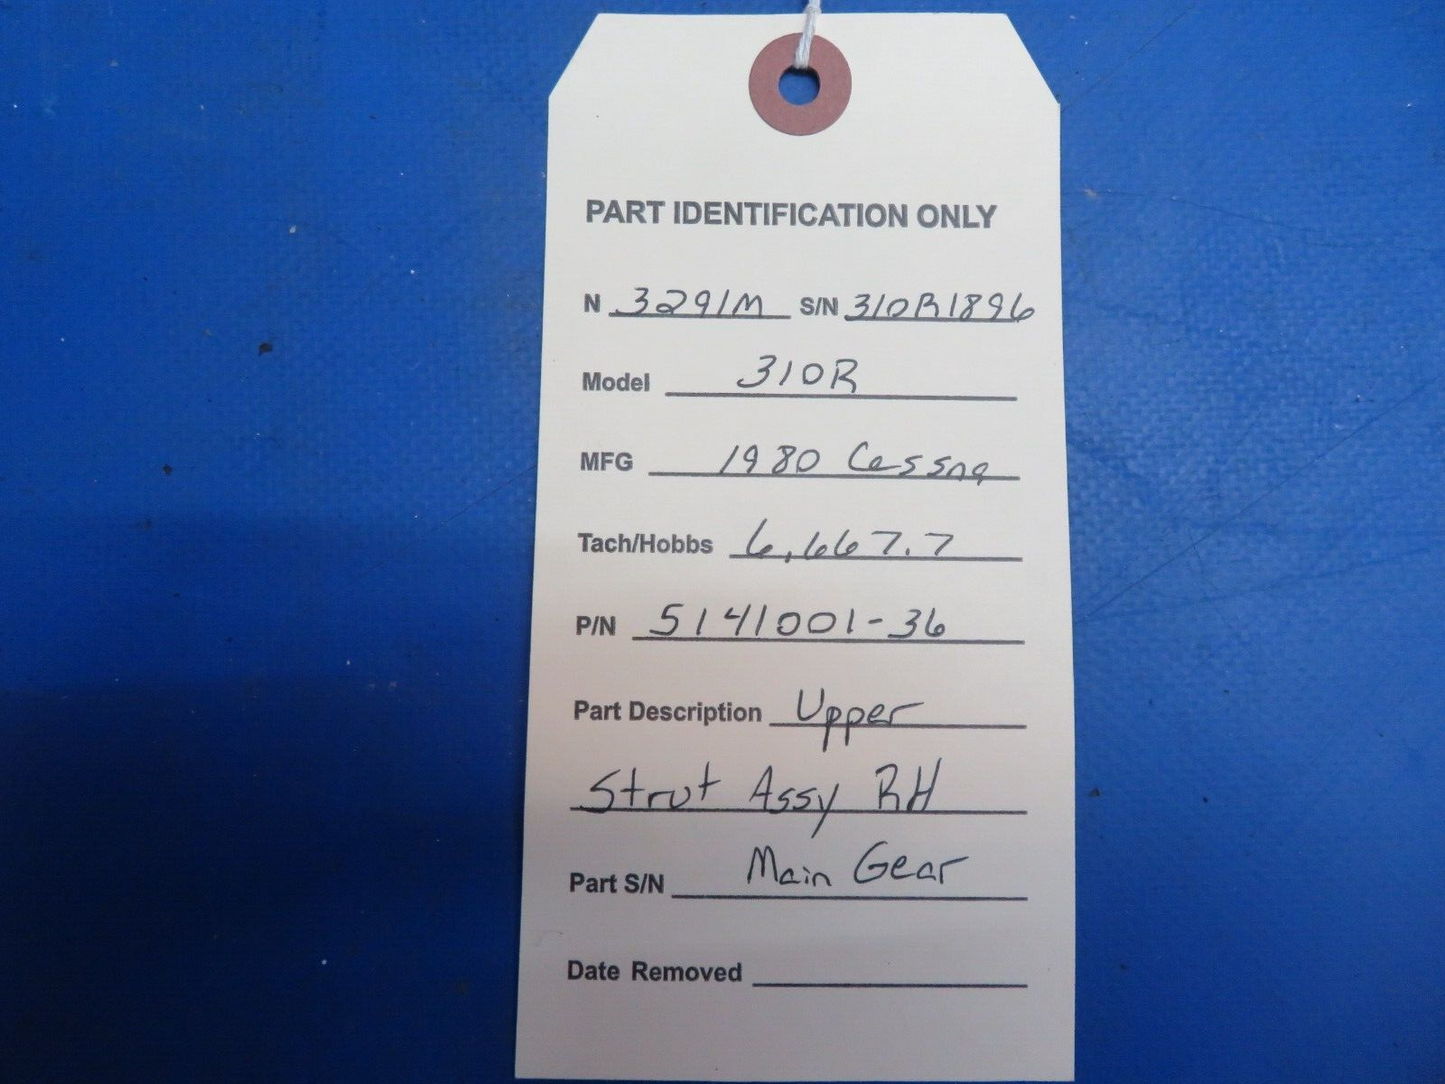 PART IDENTIFICATION ONLY
N 3291M S/N 310R1896
Model 310R
MFG 1980 Cessna
Tach/Hobbs 6,667.7
P/N 5141001-36
Part Description Upper
Strut Assy RH
Part S/N Main Gear
Date Removed